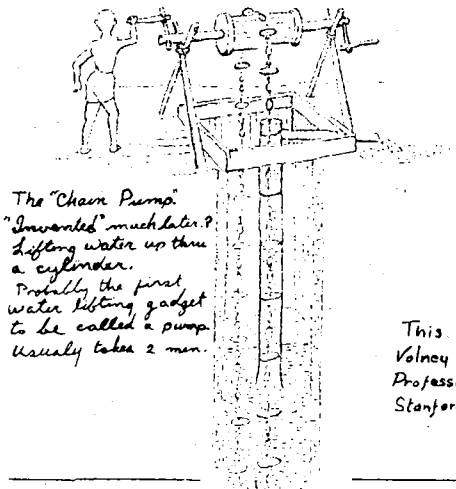 The "Chain Pump".
"Invented" much later.?
Lifting water up thru
a cylinder.
Probably the first
water lifting gadget
to be called a pump.
Usualy takes 2 men.
This
Volney
Profess
Stanfor